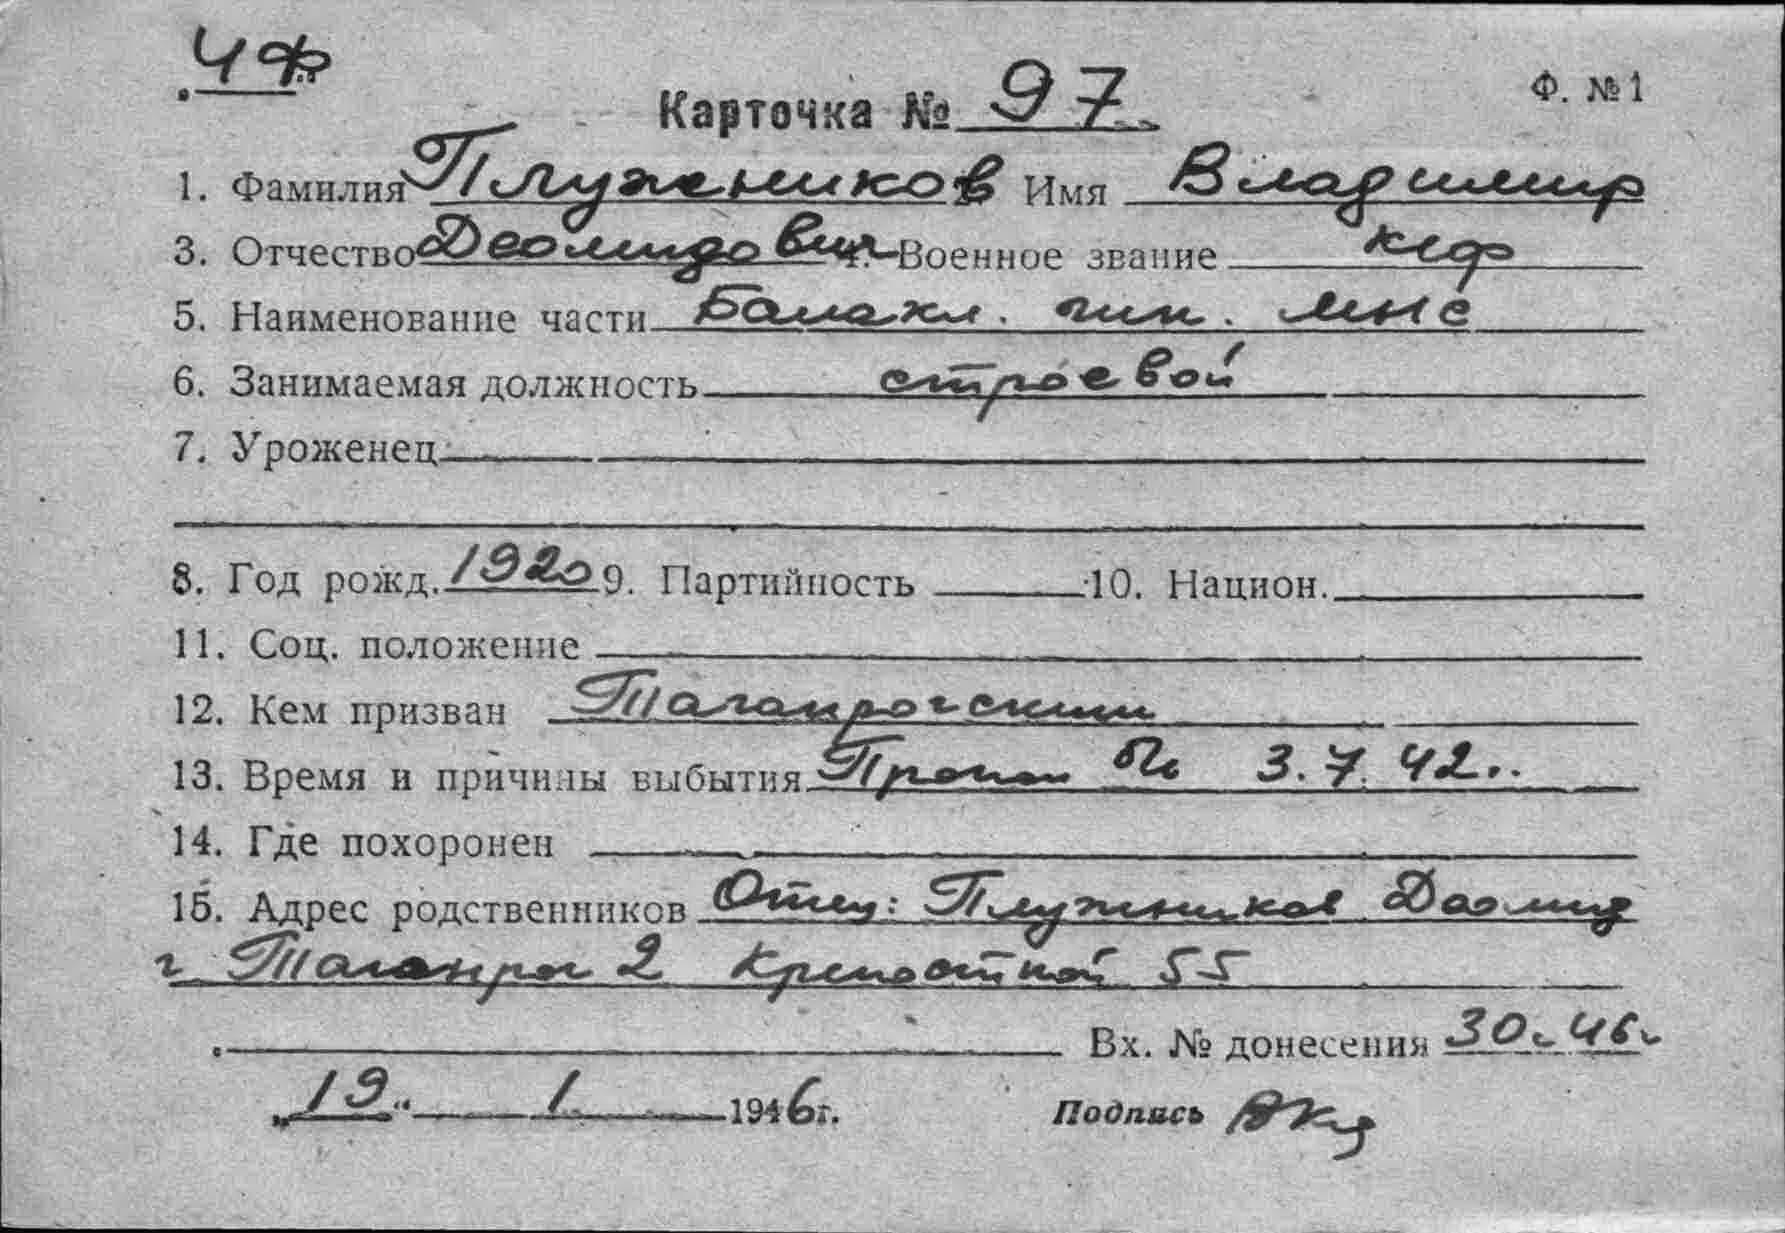 ЧФ
Карточка № 97 Ф. №1
1. Фамилия Плужников Имя Владимир
3. Отчество Деомидович 4. Военное звание кнф
5. Наименование части Балакл. мнс
6. Занимаемая должность строевой
7. Уроженец
8. Год рожд. 1920 9. Партийность 10. Национ.
11. Соц. положение
12. Кем призван Таганрогским
13. Время и причины выбытия Пропал б/в 3.7.42.
14. Где похоронен
15. Адрес родственников Отец: Плужников Деомид
г Таганрог 2 Крепостной 55
Вх. № донесения 30с 46г
„19“ 1 1946г. Подпись